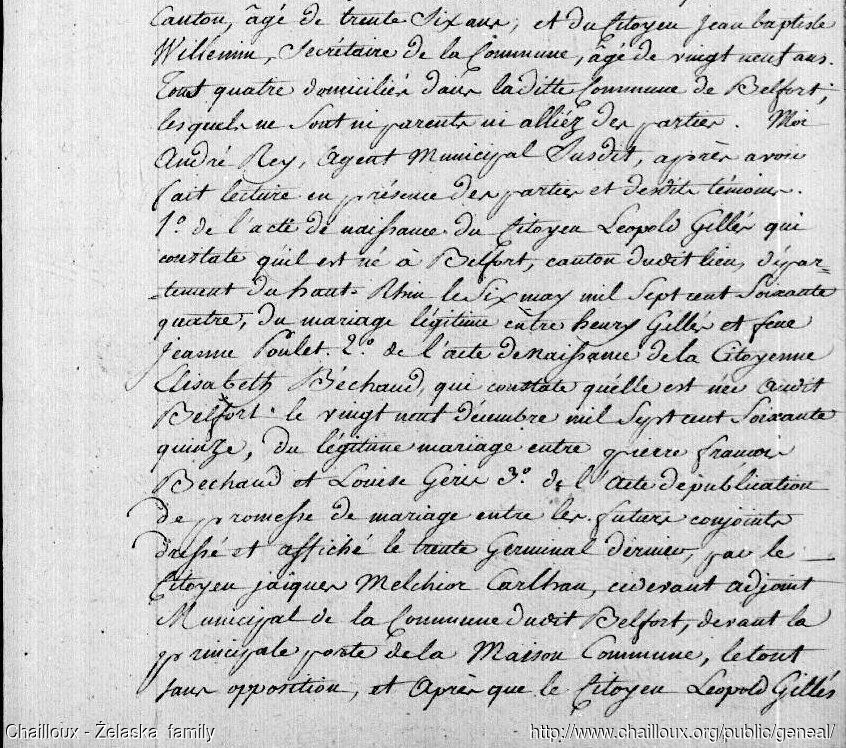 Canton, âgé de trente Six ans; et du Citoyen Jean baptiste
Willemin, Secrétaire de la Commune, âgé de vingt neuf ans.
Tous quatre domiciliés dans la ditte Commune de Belfort;
lesquels ne Sont ni parents ni alliéz des parties. Moi
André Rey, Agent Municipal Susdit, après avoir
fait lecture en présence des parties et desdits témoins.
1.º de l'acte de naissance du Citoyen Leopold Gillés qui
constate qu'il est né à Belfort, canton dudit lieu, dépar-
-tement du haut-Rhin le Six may mil Sept cent Soixante
quatre, du mariage légitime entre henry Gillés et feue
Jeanne Poulet. 2.º de l'acte de naissance de la Citoyenne
Elisabeth Béchaud, qui constate quélle est née audit
Belfort le vingt neuf décembre mil Sept cent Soixante
quinze, du légitime mariage entre pierre françois
Bechaud et Louise Geris 3.º de l'Acte de publication
de promesse de mariage entre les futurs conjoints
dressé et affiché le trente Germinal dernier, par le
Citoyen jacques Melchior Carlhan, cidevant adjoint
Municipal de la Commune dudit Belfort, devant la
principale porte de la Maison Commune, le tout
sans opposition, et Après que le Citoyen Leopold Gillés
Chailloux - Żelaska family
http://www.chailloux.org/public/geneal/